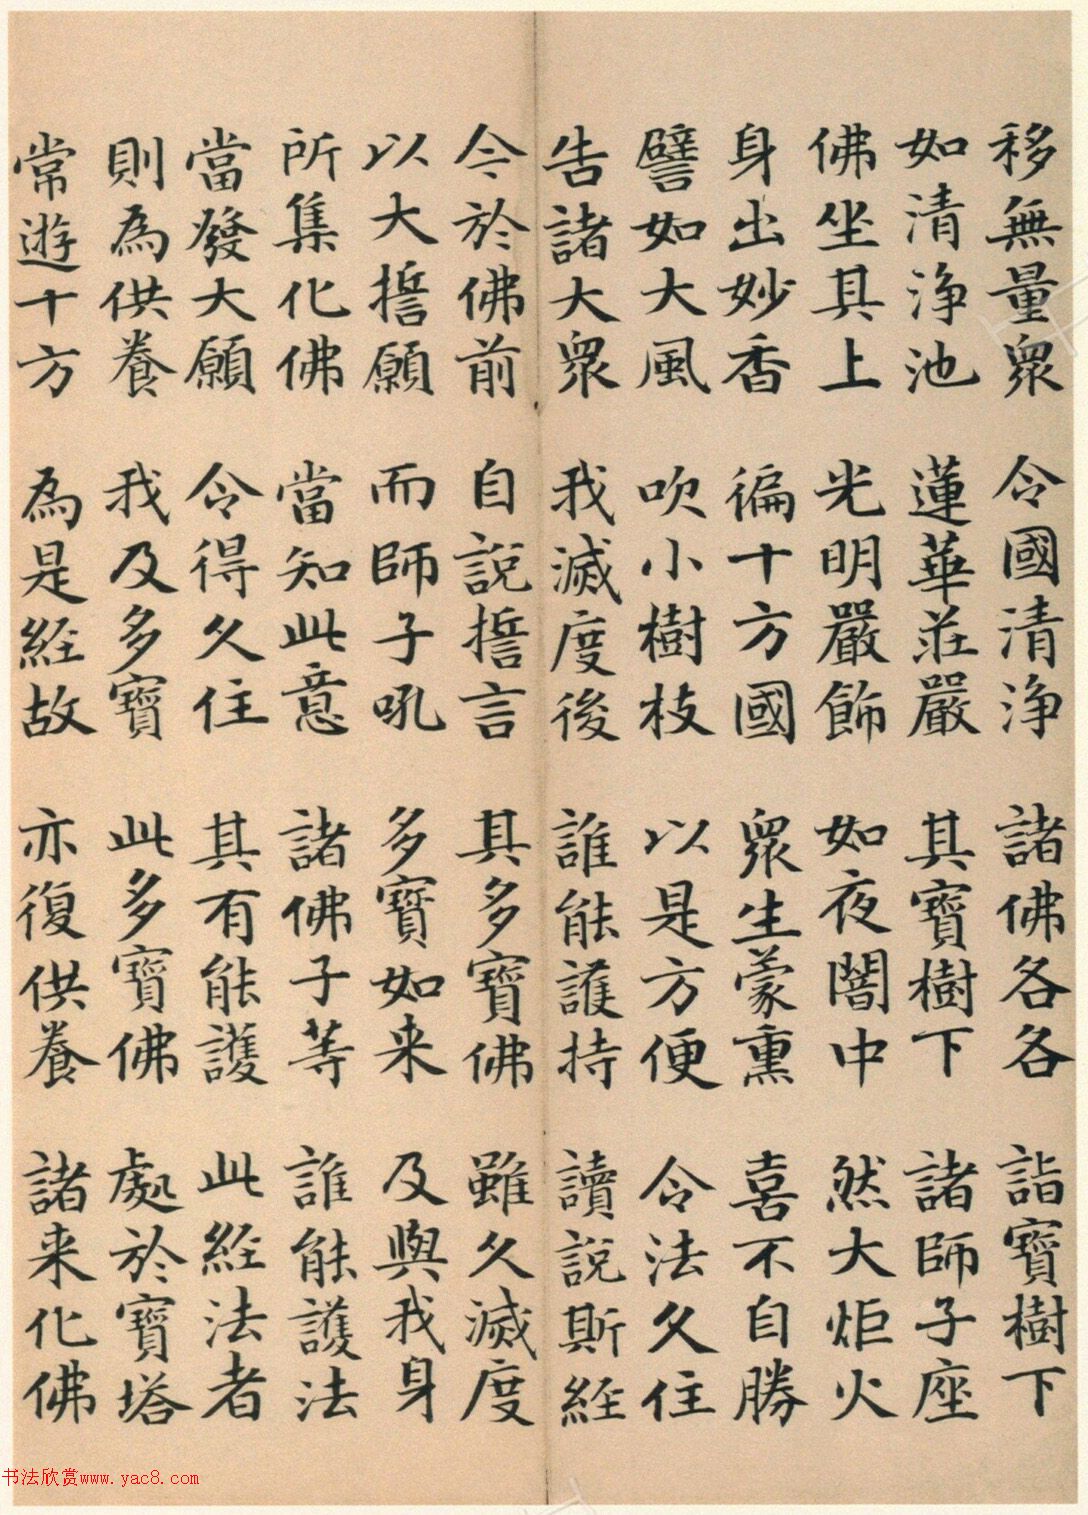 移無量眾 令國清浄 諸佛各各 詣寶樹下
如清浄池 蓮華莊嚴 其寶樹下 諸師子座
佛坐其上 光明嚴飾 如夜闇中 然大炬火
身出妙香 徧十方國 眾生蒙熏 喜不自勝
譬如大風 吹小樹枝 以是方便 令法久住
告諸大眾 我滅度後 誰能護持 讀說斯經
今於佛前 自說誓言 其多寶佛 雖久滅度
以大誓願 而師子吼 多寶如来 及與我身
所集化佛 當知此意 諸佛子等 誰能護法
當發大願 令得久住 其有能護 此經法者
則為供養 我及多寶 此多寶佛 處於寶塔
常遊十方 為是經故 亦復供養 諸来化佛
书法欣赏www.yac8.com